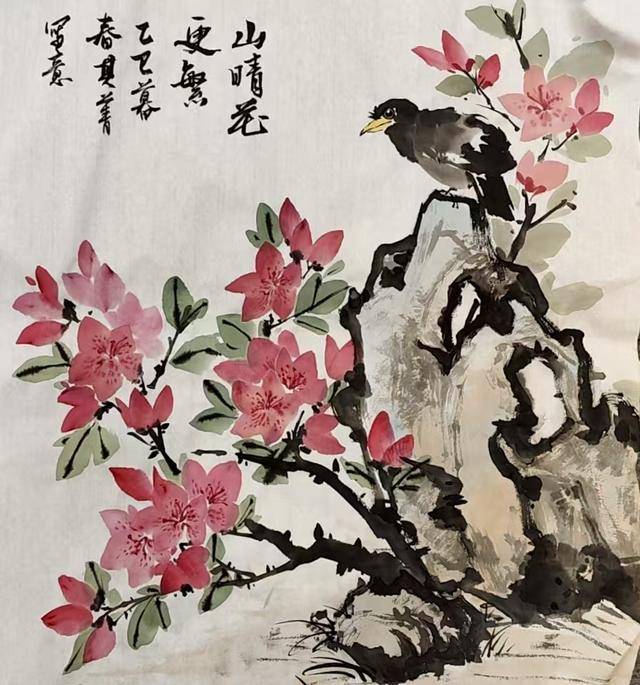 山晴花
更繁
乙巳暮
春菁
写意